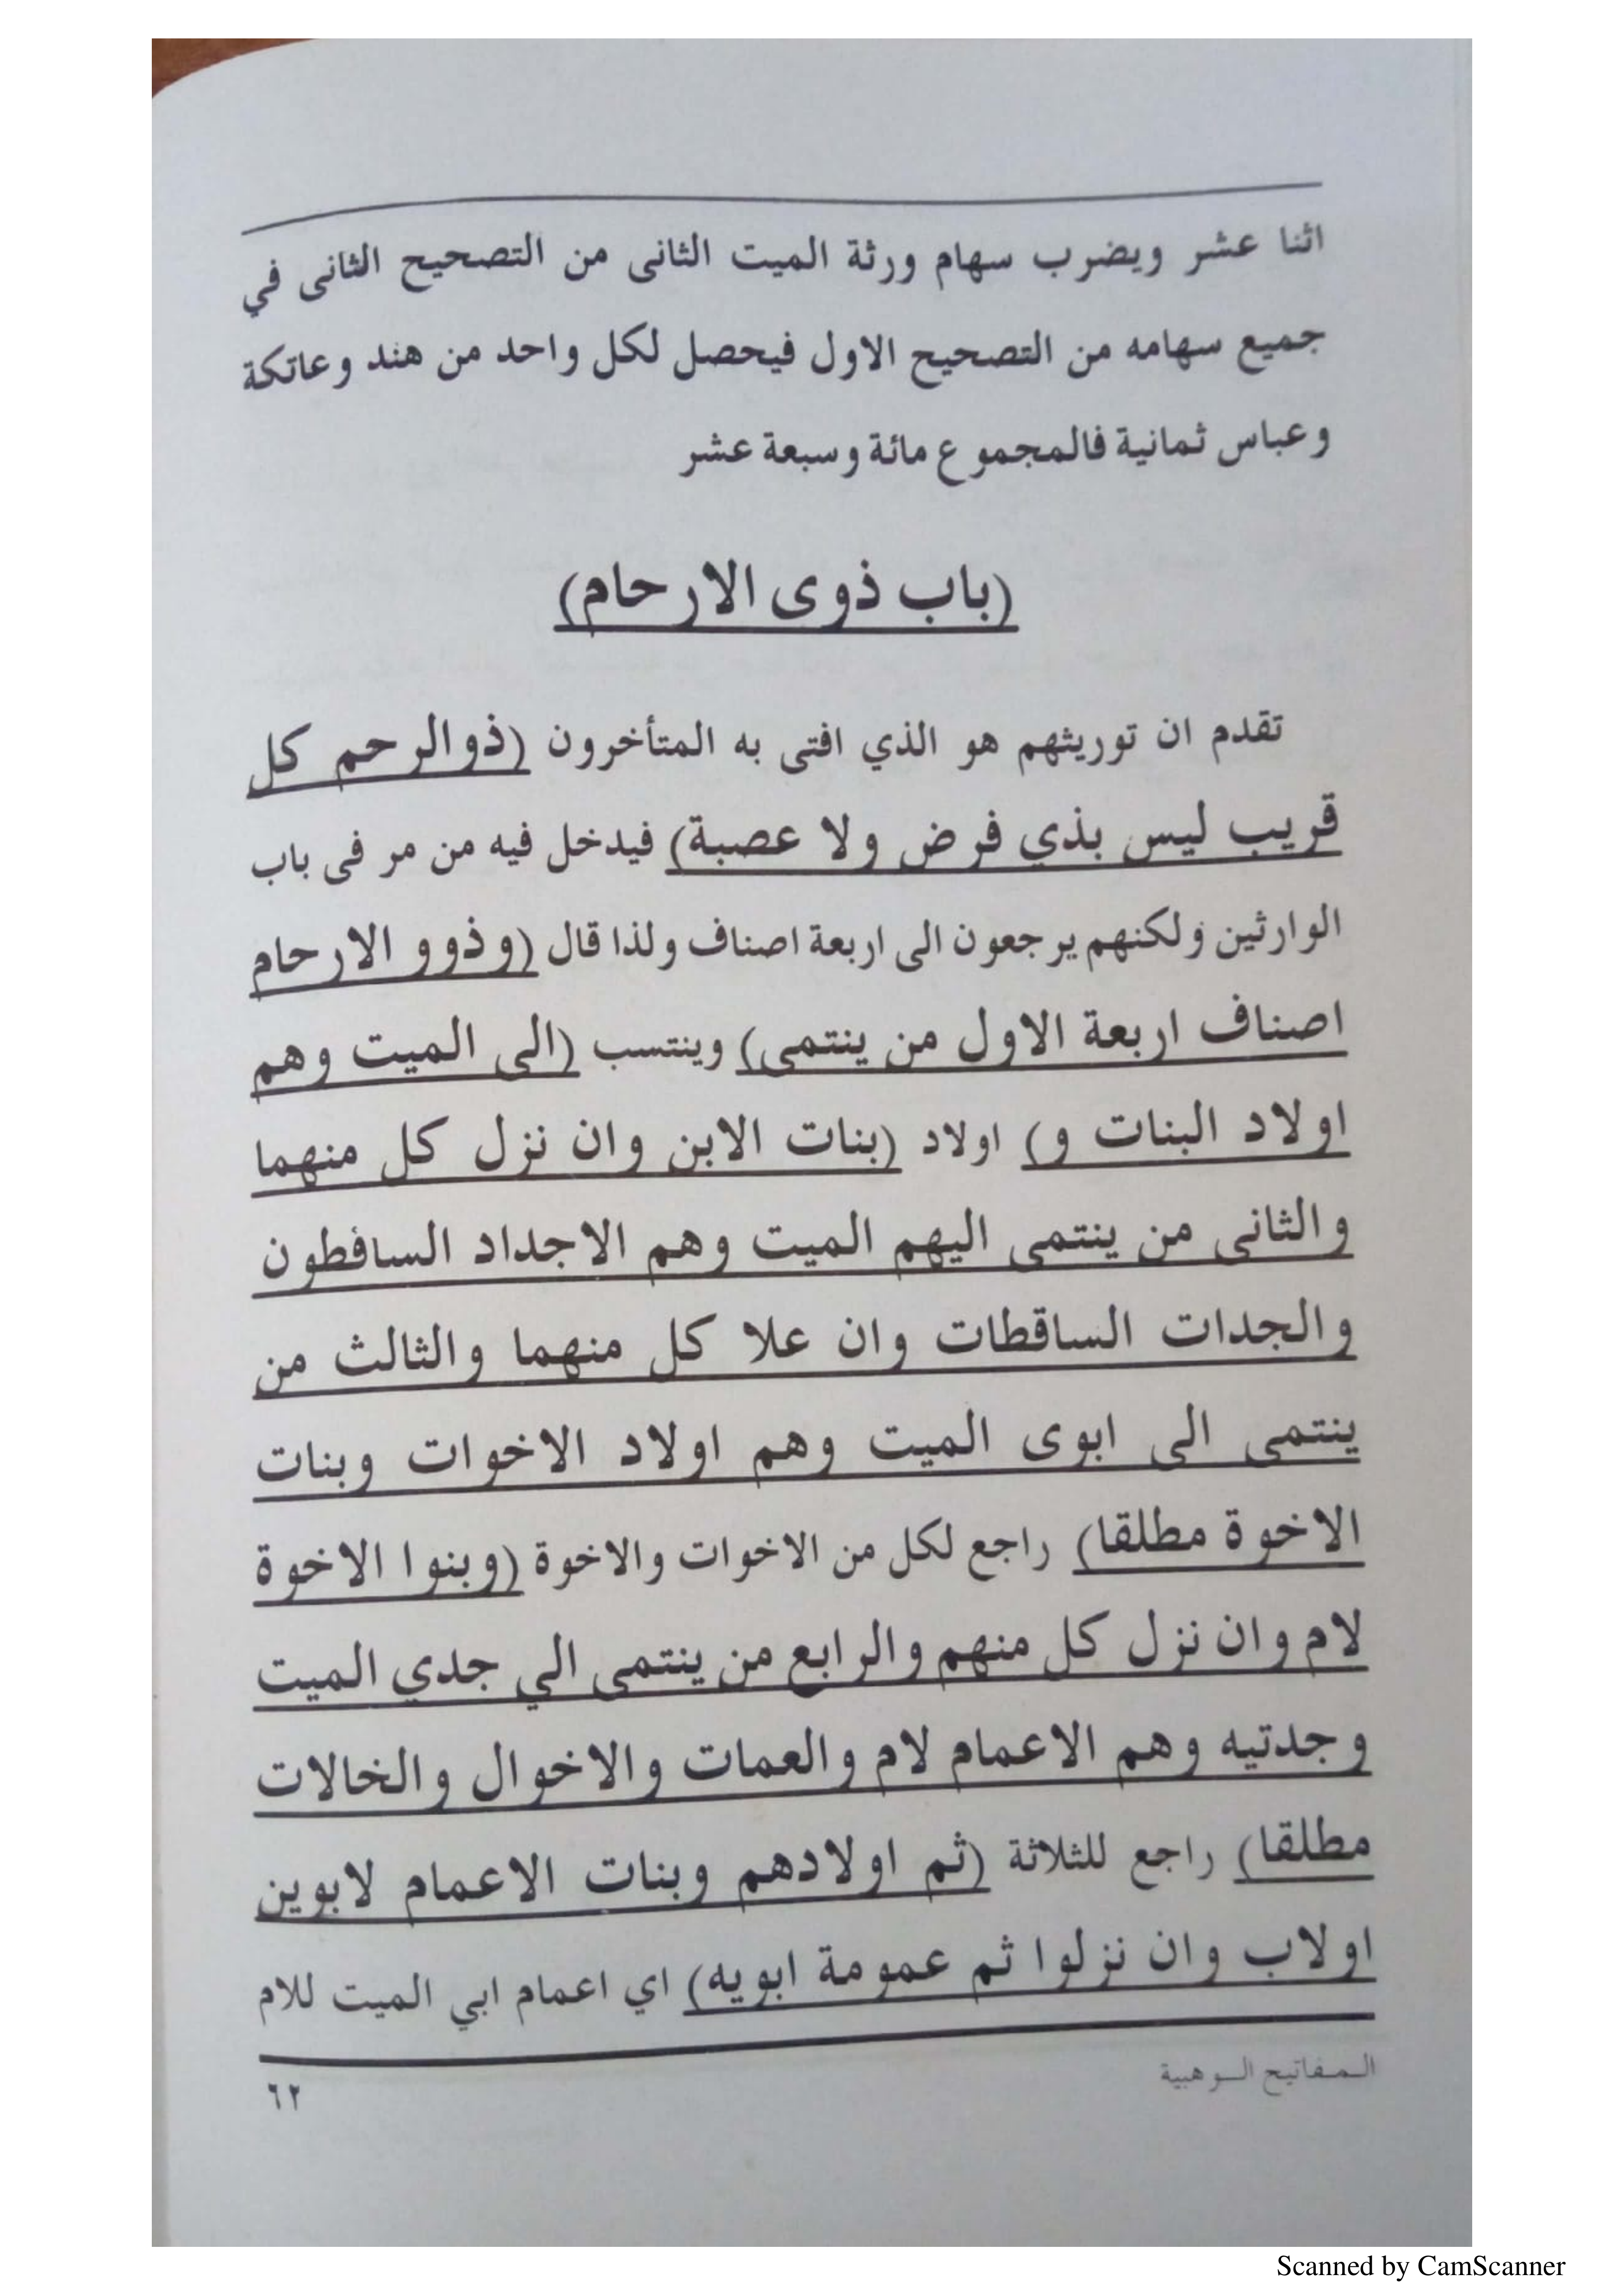 اثنا عشر ويضرب سهام ورثة الميت الثانى من التصحيح الثانى في
جميع سهامه من التصحيح الاول فيحصل لكل واحد من هند وعاتكة
وعباس ثمانية فالمجموع مائة وسبعة عشر
(باب ذوى الارحام)
تقدم ان توريثهم هو الذي افتى به المتأخرون (ذوالرحم كل
قريب ليس بذي فرض ولا عصبة) فيدخل فيه من مر فى باب
الوارثين ولكنهم يرجعون الى اربعة اصناف ولذا قال (وذوو الارحام
اصناف اربعة الاول من ينتمى) وينتسب (الى الميت وهم
اولاد البنات و) اولاد (بنات الابن وان نزل كل منهما
والثانى من ينتمى اليهم الميت وهم الاجداد السافطون
والجدات الساقطات وان علا كل منهما والثالث من
ينتمى الى ابوى الميت وهم اولاد الاخوات وبنات
الاخوة مطلقا) راجع لكل من الاخوات والاخوة (وبنوا الاخوة
لام وان نزل كل منهم والرابع من ينتمى الي جدي الميت
وجدتيه وهم الاعمام لام والعمات والاخوال والخالات
مطلقا) راجع للثلاثة (ثم اولادهم وبنات الاعمام لابوين
اولاب وان نزلوا ثم عمومة ابويه) اي اعمام ابي الميت للام
المفاتيح الوهبية
٦٢
Scanned by CamScanner